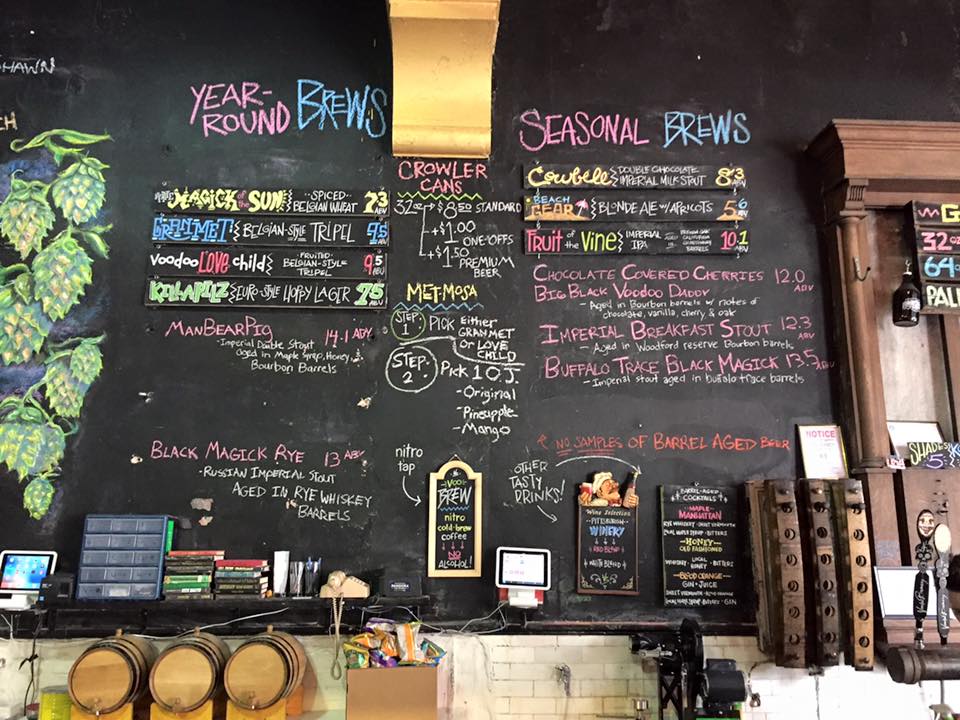 HAWN
YEAR-
ROUND BREWS
MAGICK of the SUN SPICED
BELGIAN WHEAT 7.3
ABV
GRANMET BELGIAN-STYLE TRIPEL 9.5
ABV
VOODOO LOVE CHILD FRUITED
BELGIAN-STYLE
TRIPEL 9.5
ABV
KILLAPILZ EURO-STYLE HOPPY LAGER 7.5
ABV
MANBEARPIG 14.1 ABV
-Imperial Double Stout
aged in Maple Syrup, Honey &
Bourbon Barrels
BLACK MAGICK RYE 13 ABV
-RUSSIAN IMPERIAL STOUT
AGED IN RYE WHISKEY
BARRELS
CROWLER
CANS
32oz → $8.50 STANDARD
+$1.00
ONE-OFFS
+$1.50
PREMIUM
BEER
METMOSA
STEP
1 PICK EITHER
GRANMET
OR LOVE
CHILD
STEP
2 PICK 1 O.J.
-Original
-Pineapple
-Mango
nitro
tap
VOO
BREW
nitro
cold-brew
coffee
NO
ALCOHOL!
SEASONAL BREWS
Cowbell DOUBLE CHOCOLATE
IMPERIAL MILK STOUT 8.3
ABV
BEACH
GEAR BLONDE ALE w/ APRICOTS 5.6
ABV
FRUIT of the VINE IMPERIAL
IPA 10.1
ABV
CHOCOLATE COVERED CHERRIES 12.0
ABV
BIG BLACK VOODOO DADDY
-Aged in Bourbon barrels w/ notes of
chocolate, vanilla, cherry, & oak
IMPERIAL BREAKFAST STOUT 12.3
ABV
-Aged in Woodford reserve Bourbon barrels
BUFFALO TRACE BLACK MAGICK 13.5 ABV
-Imperial stout aged in buffalo trace barrels
* NO SAMPLES OF BARREL AGED BEER
OTHER
TASTY
DRINKS!
Wine Selection
PITTSBURGH
WINERY
RED BLEND
WHITE BLEND
BARREL-AGED
COCKTAILS
MAPLE
MANHATTAN
RYE WHISKEY · SWEET VERMOUTH
LOCAL MAPLE SYRUP · BITTERS
HONEY
OLD FASHIONED
WHISKEY · LOCAL
HONEY · BITTERS
BLOOD ORANGE
GIN & JUICE
NOTICE
G
32 oz
64 o
PAL
SHADES
PANDORA